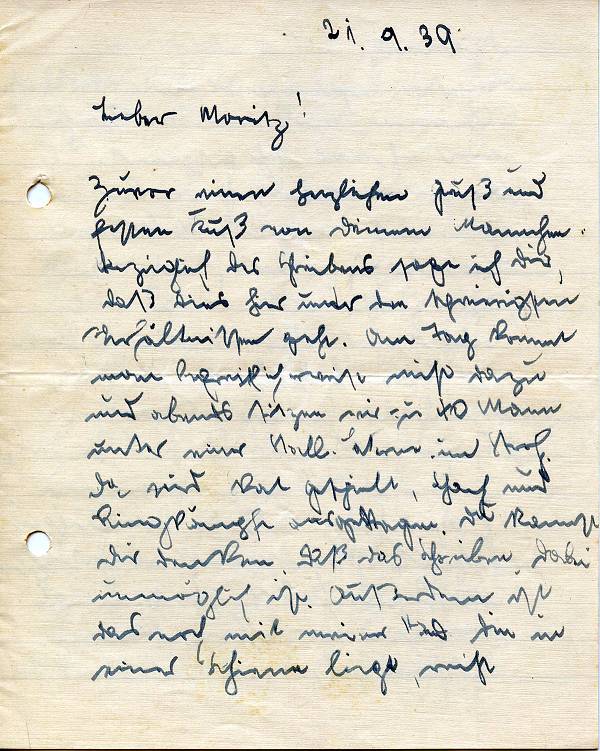 21. 9. 39
Lieber Moritz!
Zuvor einen herzlichen Gruß und
festen Kuß von deinem Mannchen.
Bezüglich des Schreibens sage ich Dir,
daß dies hier unter den schwierigsten
Verhältnissen geht. Am Tag kommt
man begreiflicherweise nicht dazu
und abends sitzen wir zu 40 Mann
unter einer Stall-Laterne im Stroh.
Da wird Skat gespielt, Schach und
Ringkämpfe ausgetragen. Du kannst
dir denken, daß das Schreiben dabei
unmöglich ist. Außerdem ist
das auch mit meiner Hand, die in
einer Schiene liegt, nicht